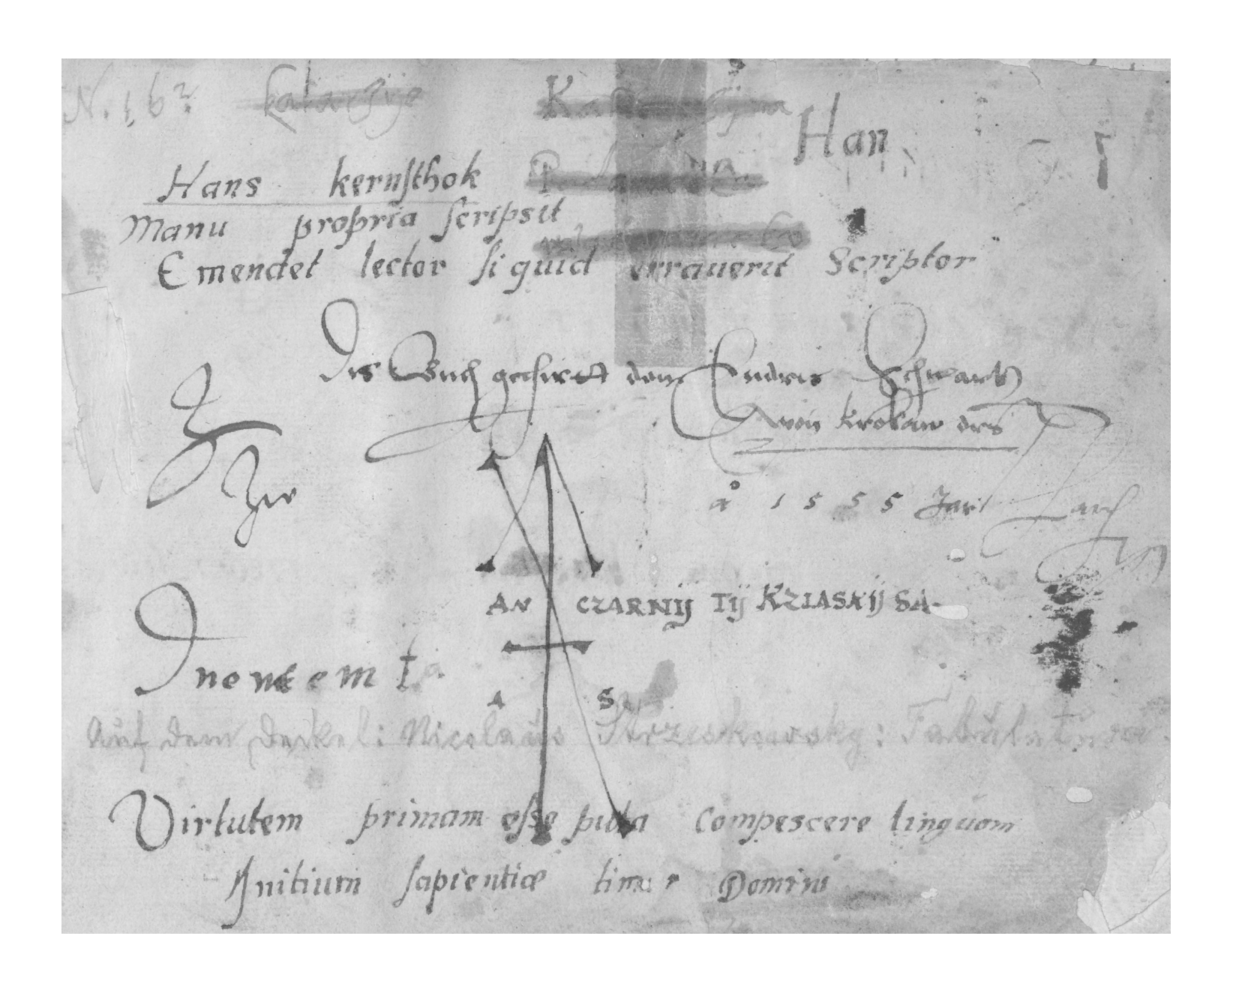 N. 162
Han
Hans kernsthok
Manu propria scripsit
Emendet lector si quid erraverit Scriptor
Dis Buch gehirtt dem Endris Schwartz
von krokaw des
a° 1555 Jar
AN CZARNIJ TIJ KZIASKIJ SA
A S
Auf dem Deckel: Nicolaus Strzeskowsky: Tabulatura
Virtutem primam esse puta compescere linguam
Initium sapientiæ timor Domini